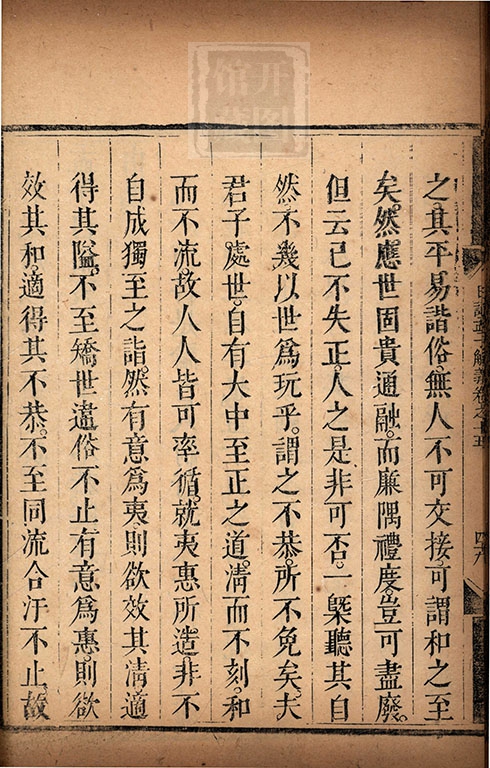 之其平易諧俗。無人不可交接。可謂和之至
矣。然應世固貴通融。而廉隅禮度。豈可盡廢。
但云己不失正。人之是非可否。一槩聽其自
然。不幾以世爲玩乎。謂之不恭。所不免矣。夫
君子處世。自有大中至正之道。淸而不刻。和
而不流。故人人皆可率循。就夷惠所造非不
自成獨至之詣。然有意爲夷。則欲效其淸。適
得其隘。不至矯世違俗不止。有意爲惠。則欲
效其和。適得其不恭。不至同流合汙不止。故